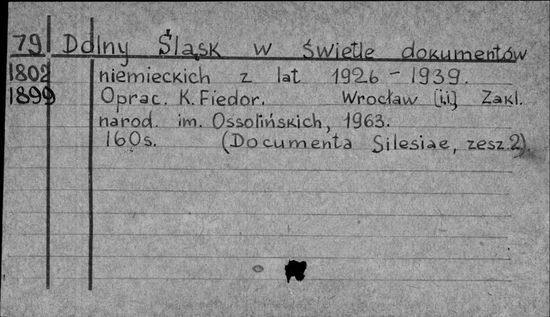 79 Dolny Śląsk w świetle dokumentów
1802 niemieckich z lat 1926-1939.
1899 Oprac. K. Fiedor. Wrocław [i.i.] Zakł.
narod. im. Ossolińskich, 1963.
160s. (Documenta Silesiae, zesz.2).